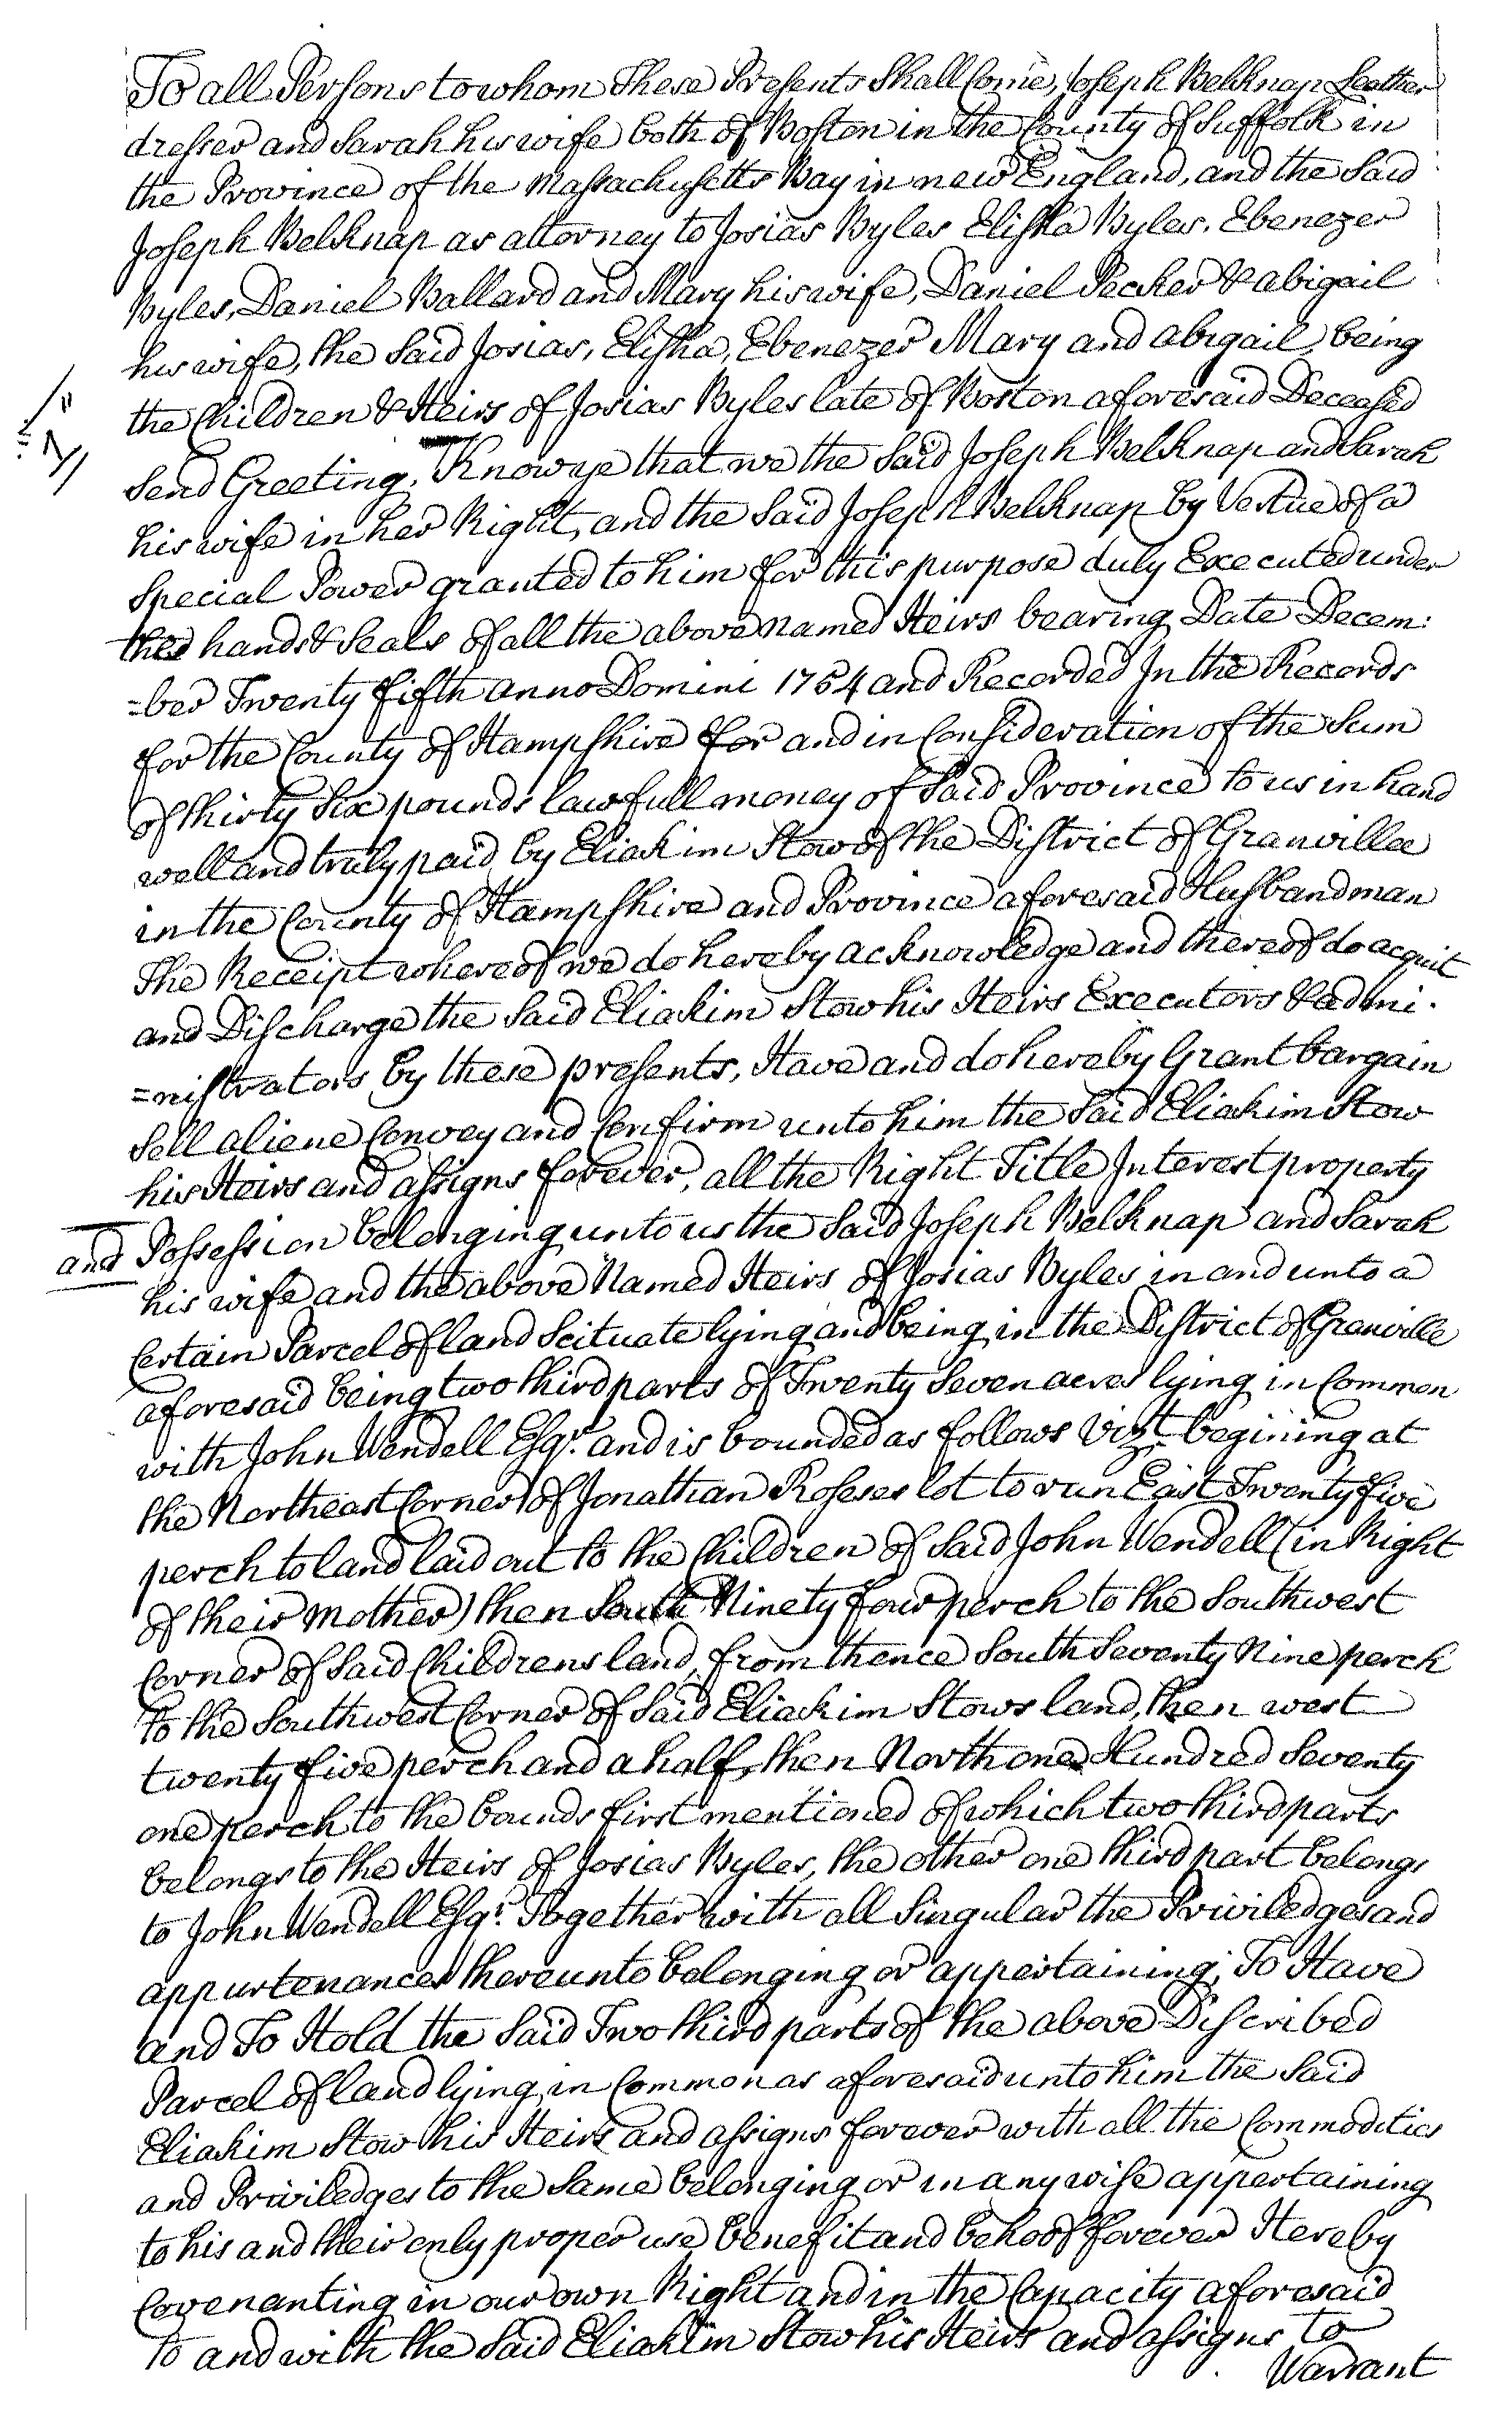 To all Persons to whom These Presents Shall Come, Joseph Belknap Leather
dresser and Sarah his wife both of Boston in the County of Suffolk in
the Province of the Massachusetts Bay in new England, and the Said
Joseph Belknap as attorney to Josias Byles Elisha Byles, Ebenezer
Byles, Daniel Ballard and Mary his wife, Daniel Pecker & abigail
his wife, the Said Josias, Elisha, Ebenezer Mary and abigail, being
the Children & Heirs of Josias Byles late of Boston aforesaid Deceased
Send Greeting, Know ye that we the Said Joseph Belknap and Sarah
his wife in her Right, and the Said Joseph Belknap by Vertue of a
Special Power granted to him for this purpose duly Executed under
the hands & Seals of all the above named Heirs bearing Date Decem:
=ber Twenty fifth anno Domini 1754 and Recorded In the Records
for the County of Hampshire for and in Consideration of the Sum
of thirty Six pounds lawfull money of Said Province to us in hand
well and truly paid by Eliakim Stow of the District of Granville
in the County of Hampshire and Province aforesaid Husbandman
The Receipt whereof we do hereby acknowledge and thereof do acquit
and Discharge the Said Eliakim Stow his Heirs Executors & admi.
=nistrators by these presents, Have and do hereby Grant bargain
Sell aliene Convey and Confirm unto him the Said Eliakim Stow
his Heirs and assigns forever, all the Right Title Interest property
and Possession belonging unto us the Said Joseph Belknap and Sarah
his wife and the above Named Heirs of Josias Byles in and unto a
Certain Parcel of land Scituate lying and being in the District of Granville
aforesaid being two third parts of Twenty Seven acres lying in Common
with John Wendell Esqr. and is bounded as follows Vizt. begining at
the Northeast Corner of Jonathan Roses lot to run East Twenty five
perch to land laid out to the Children of Said John Wendell (in Right
of their mother) then South Ninety four perch to the Southwest
Corner of Said Childrens land, from thence South Seventy Nine perch
to the Southwest Corner of Said Eliakim Stows land, then west
twenty five perch and a half, then North one Hundred Seventy
one perch to the bounds first mentioned of which two third parts
belongs to the Heirs of Josias Byles, the other one third part belongs
to John Wendell Esqr. Together with all Singular the Priviledges and
appurtenances thereunto belonging or appertaining; To Have
and To Hold the Said Two third parts of the above Discribed
Parcel of land lying in Common as aforesaid unto him the Said
Eliakim Stow his Heirs and assigns forever with all the Commodities
and Priviledges to the Same belonging or in any wise appertaining
to his and their only proper use benefit and behoof forever Hereby
Covenanting in our own Right and in the Capacity aforesaid
to and with the Said Eliakim Stow his Heirs and assigns to
Warrant